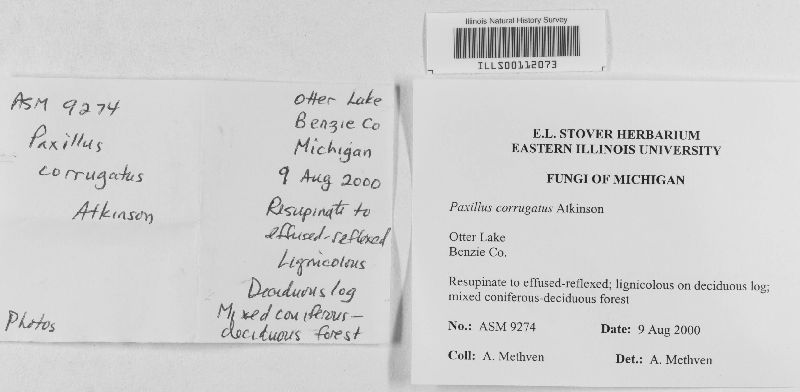 Illinois Natural History Survey
ILLS00112073
ASM 9274
Paxillus
corrugatus
Atkinson
Photos
Otter Lake
Benzie Co
Michigan
9 Aug 2000
Resupinate to
effused-reflexed
Lignicolous
Deciduous log
Mixed coniferous-
deciduous forest
E.L. STOVER HERBARIUM
EASTERN ILLINOIS UNIVERSITY
FUNGI OF MICHIGAN
Paxillus corrugatus Atkinson
Otter Lake
Benzie Co.
Resupinate to effused-reflexed; lignicolous on deciduous log;
mixed coniferous-deciduous forest
No.: ASM 9274 Date: 9 Aug 2000
Coll: A. Methven Det.: A. Methven